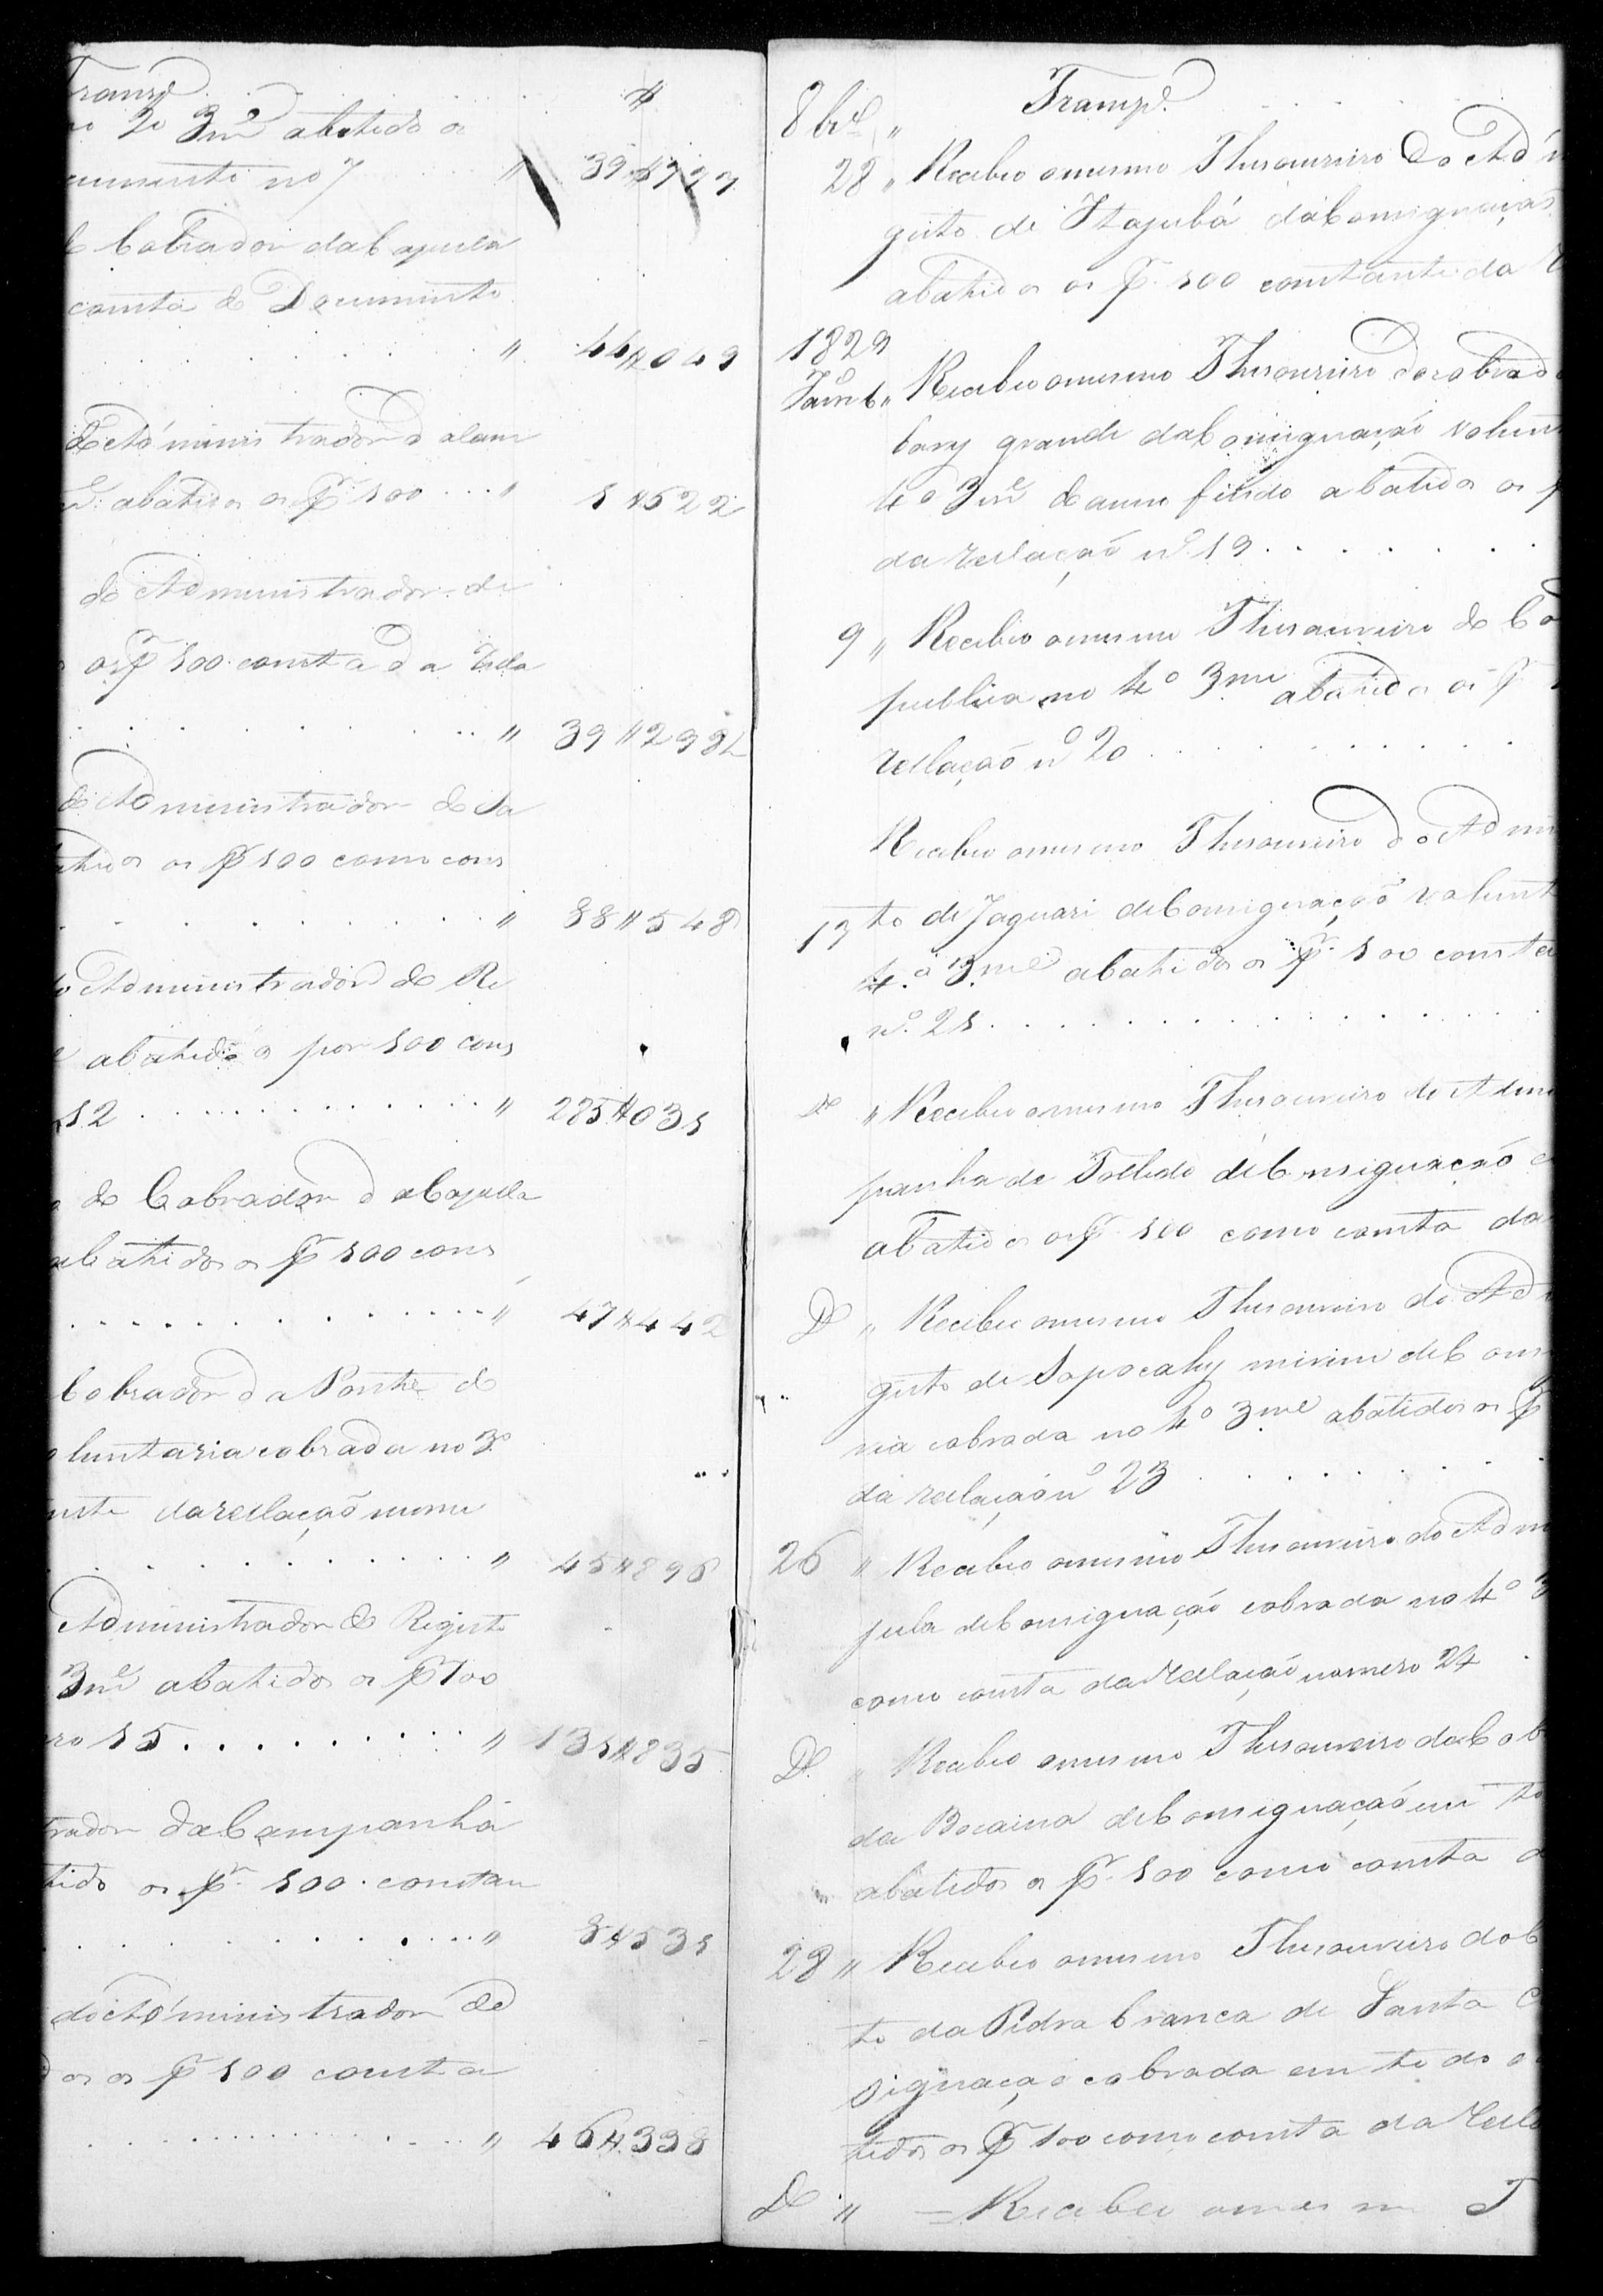 Transp.e
no 2o 3me abatido os
cumento no 7 . . . " 39#4927
Cobrador da Capella
consta do Documento
. . . . . . . . . " 44#049
do Administrador d alem
abatidos os p 100 . . . " 1#522
do Administrador de
os p 100 consta da Rela
. . . . . . . . . " 39#298
do Administrador de Sa
atidos os p 100 como cons
. . . . . . . . . " 88#548
do Administrador do Re
abatidos os por 100 cons
12 . . . . . . . . . " 285#031
do Cobrador da Capella
abatidos os p 100 cons
. . . . . . . . . " 47#442
Cobrador da Ponte do
oluntaria cobrada no 3o
nste da rellação nume
. . . . . . . . . " 451#896
Administrador do Registo
3me abatidos os p 100
ro 15 . . . . . . . . . " 131#835
trador da Campanha
tido os pr 100 constan
. . . . . . . . . " 8#531
do Administrador de
dos os p 100 consta
. . . . . . . . . " 46#338
8bre " Transp.e . . . .
28 " Recebeo o mesmo Thesoureiro do Adm
gisto de Itajubá da Consignação
abatidos os p 100 constante da R
1829
Janro 6 " Recebeo o mesmo Thesoureiro do cobrado
grande da Consignação volunt
4o 3me do anno findo abatidos os p
da rellação no 19 . . . . . . .
9 " Recebeo o mesmo Thesoureiro do Co
publica no 4o 3me abatidos os p
rellação no 20 . . . . . . . . .
Recebeo o mesmo Thesoureiro do Admi
17 to de Jaguari de Consignação volunt
4.o 3.me abatidos os p 100 consta
no. 21 . . . . . . . . . . .
Do " Recebeo o mesmo Thesoureiro do Admi
panha de Tolledo de Consignação
abatidos os p 100 como consta da
Do " Recebeo o mesmo Thesoureiro do Adm
gisto de Sapocahy mirim de Cons
ria cobrada no 4o 3me abatidos os p
da rellação no 23 . . . . . . .
26 " Recebeo o mesmo Thesoureiro do Adm
de Consignação cobrada no 4o 3
como consta da Rellação numero 24 .
Do. " Recebeo o mesmo Thesoureiro do Cob
da Bocaina de Consignação em to
abatidos os p 100 como consta d
28 " Recebeo o mesmo Thesoureiro do C
to da Pedra branca de Santa C
signação cobrada em todo o
tidos os p 100 como consta da Rella
Do " = Recebeo o mesmo T